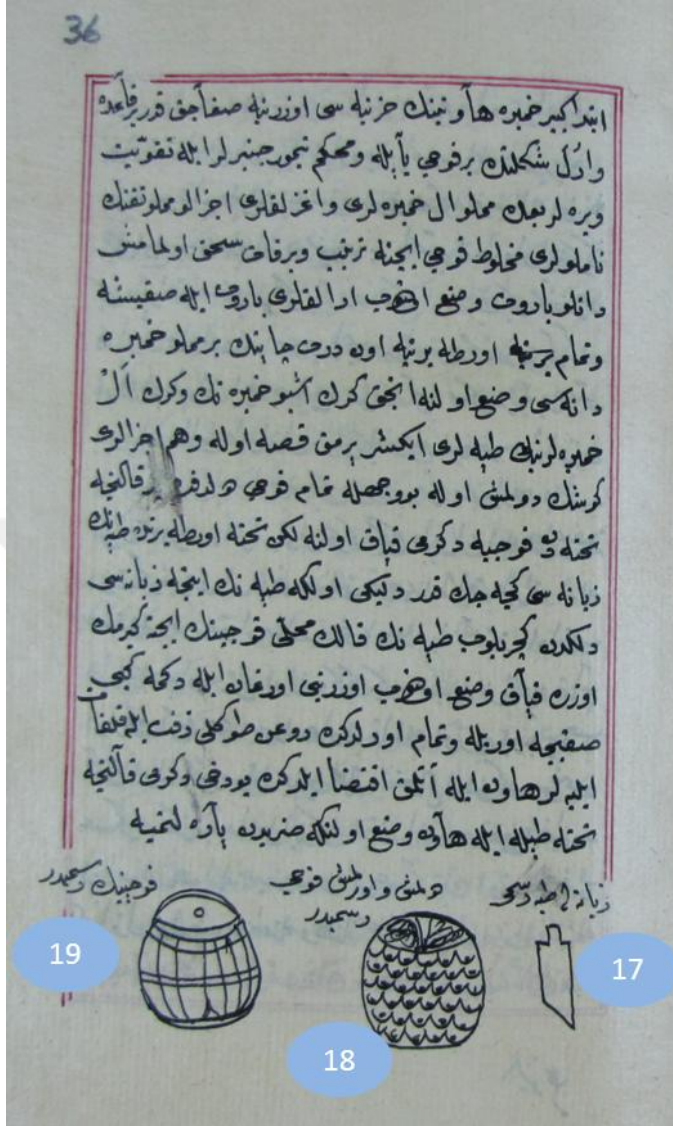 36
ابتدا كبير خمبره هاونينك خزنيه سى اوزرنيه صغاجق قدر برقاعده
واروُل شكلنده برفوجى ياپيله ومحكم تيمور جنبرلر ايله تقويت
ويره لر بعده مملو ال خمبره لرى واغزلقلرى اجزالو مملو تفنك
ناملولرى مخلوط فوچى ايچنه ترتيب وبرقاچ سحق اولمامش
دانلو باروت وضع اولنوب ارالقلرى باروت ايله صقيشه
وتمام اورطه يرنيه اون درت چاپنك برمملو خمبره
دانه سى وضع اولنه انجق كرك اشبو خمبره نك وكرك ال
خمبره لرينك طپه لرى ايكيشر پرمق قصه اوله وهم اجزالرى
كوشك دولمش اوله بووجهله تمام فوچى طولدقده بر قالنجه
تخته دن فوچيه دكرمى قپاق اولنه لكن تخته اورطه يرنده طپه نك
زبانه سى كچه جك قدر دليكى اولكه طپه نك اينجه زبانه سى
دلكدن كچريلوب طپه نك قالن محلى فوچينك ايچنه كيرمك
اوزره قپاق وضع اولنوب اوزرينى اورغان ايله دكمه كبى
صقيجه اوريله وتمام اورلدكده روغن صولكلى زفت ايله قلفات
ايليه لر هاون ايله آتلمق اقتضا ايلدكده بودخى دكرمى قالنجه
تخته طبله ايله هاونه وضع اولنكه ضربدن پاره لنميه
زبانه لى طپه رسمى
طولمش واورلمش فوچى
رسميدر
فوچينك رسميدر
17
18
19